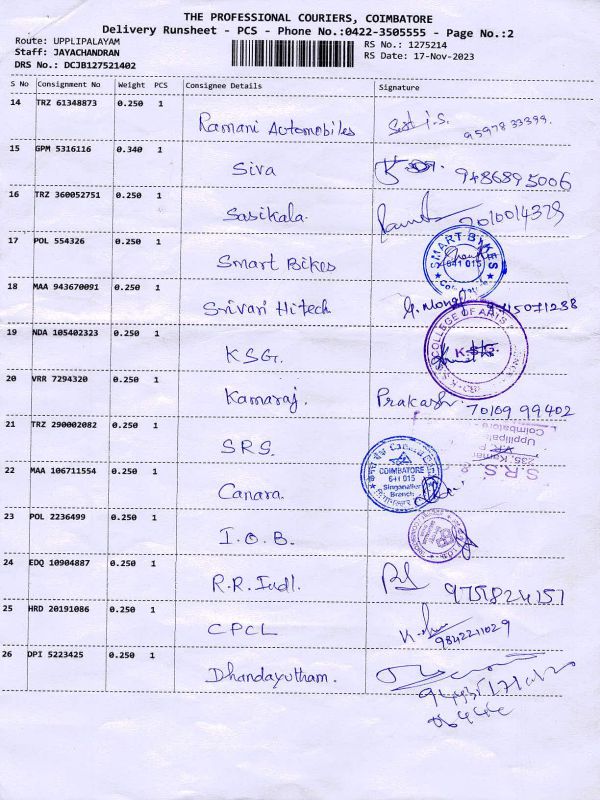 THE PROFESSIONAL COURIERS, COIMBATORE
Delivery Runsheet - PCS - Phone No.:0422-3505555 - Page No.:2
Route: UPPLIPALAYAM
Staff: JAYACHANDRAN
DRS No.: DCJB127521402
RS No.: 1275214
RS Date: 17-Nov-2023
S No Consignment No Weight PCS Consignee Details Signature
14 TRZ 61348873 0.250 1 Ramani Automobiles 95978 33399.
15 GPM 5316116 0.340 1 Siva 9486895006
16 TRZ 360052751 0.250 1 Sasikala. 7010014329
17 POL 554326 0.250 1 Smart Bikes
SMART BIKES
641 015
18 MAA 943670091 0.250 1 Srivari Hitech
19 NDA 105402323 0.250 1 KSG.
COLLEGE OF ARTS
20 VRR 7294320 0.250 1 Kamaraj. Prakash. 70109 99402
21 TRZ 290002082 0.250 1 S.R.S.
S.R.S.
Coimbatore
22 MAA 106711554 0.250 1 Canara.
COIMBATORE
641 015
Singanallur
Branch
23 POL 2236499 0.250 1 I.O.B.
24 EDQ 10904887 0.250 1 R.R. Indl. 9751824157
25 HRD 20191086 0.250 1 CPCL 9842211029
26 DPI 5223425 0.250 1 Dhandayutham.